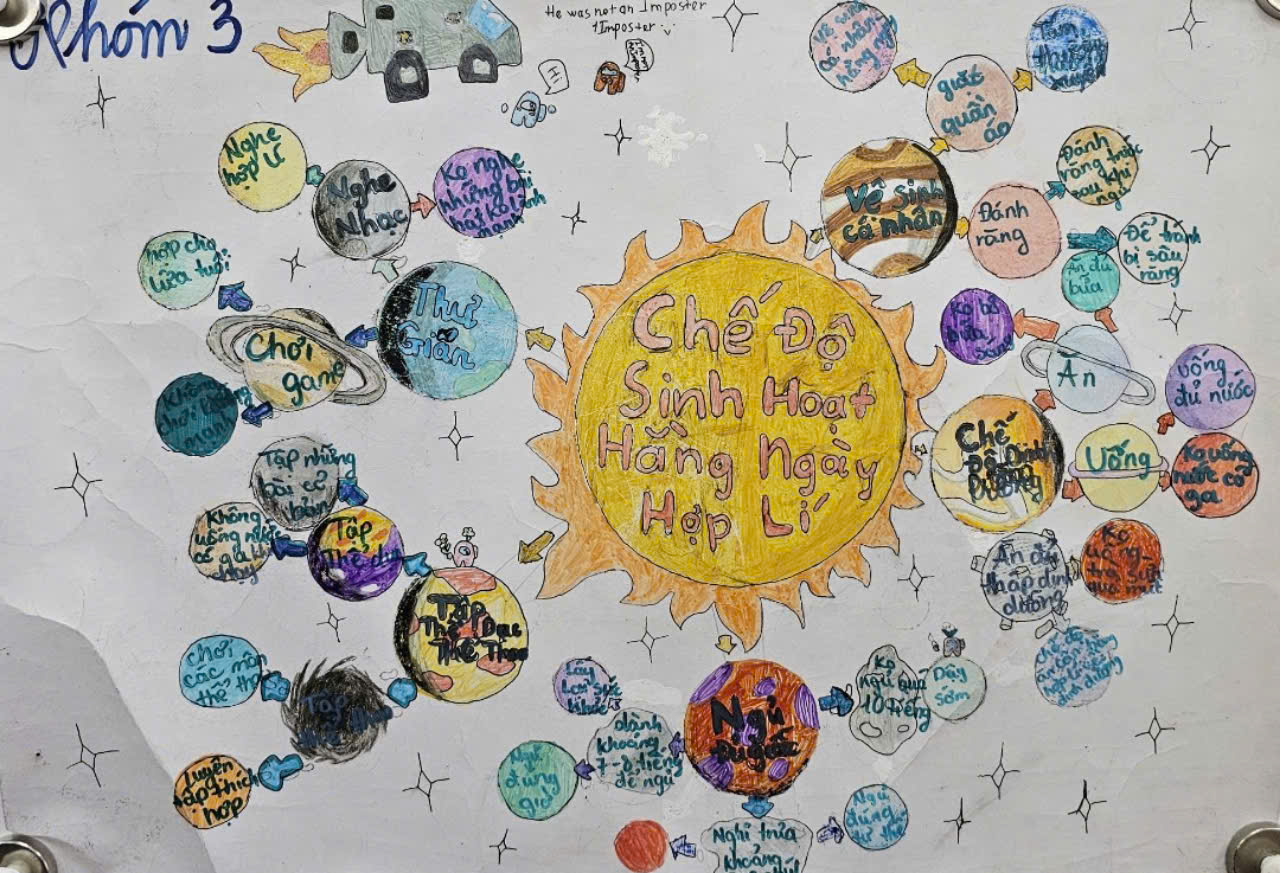 Nhóm 3
He was not an Imposter
1 Imposter
Hi
Chế Độ
Sinh Hoạt
Hằng Ngày
Hợp Lí
Thư
Giãn
Nghe
Nhạc
Nghe
hợp lí
Ko nghe
những bài
hát ko lành
mạnh
Chơi
game
hợp cho
lứa tuổi
Không
chơi
mạnh
Tập
Thể Dục
Thể Thao
Tập
Thể dục
Tập những
bài cơ
bản
Không
uống nước
có ga khi
Tập
chơi
các môn
thể thao
Luyện
tập thích
hợp
Ngủ
Đủ giấc
dành
khoảng
7-8 tiếng
để ngủ
Lấy
lại sức
khỏe
Nghỉ
đúng
giờ
Nghỉ trưa
khoảng
Ngủ
đúng
tư thế
Ko
ngủ quá
10 tiếng
Dậy
sớm
Chế
Độ Dinh
Dưỡng
Ăn
Ăn đủ
bữa
Ko bỏ
bữa sáng
Uống
uống
đủ nước
Ko uống
nước có
ga
Ăn đủ
tháp dinh
dưỡng
Ko
uống
trà sữa
quá mức
Vệ sinh
cá nhân
giặt
quần
áo
Vệ sinh
cá nhân
hằng ngày
Đánh
răng
Đánh
răng trước
sau khi
ngủ
Để tránh
bị sâu
răng